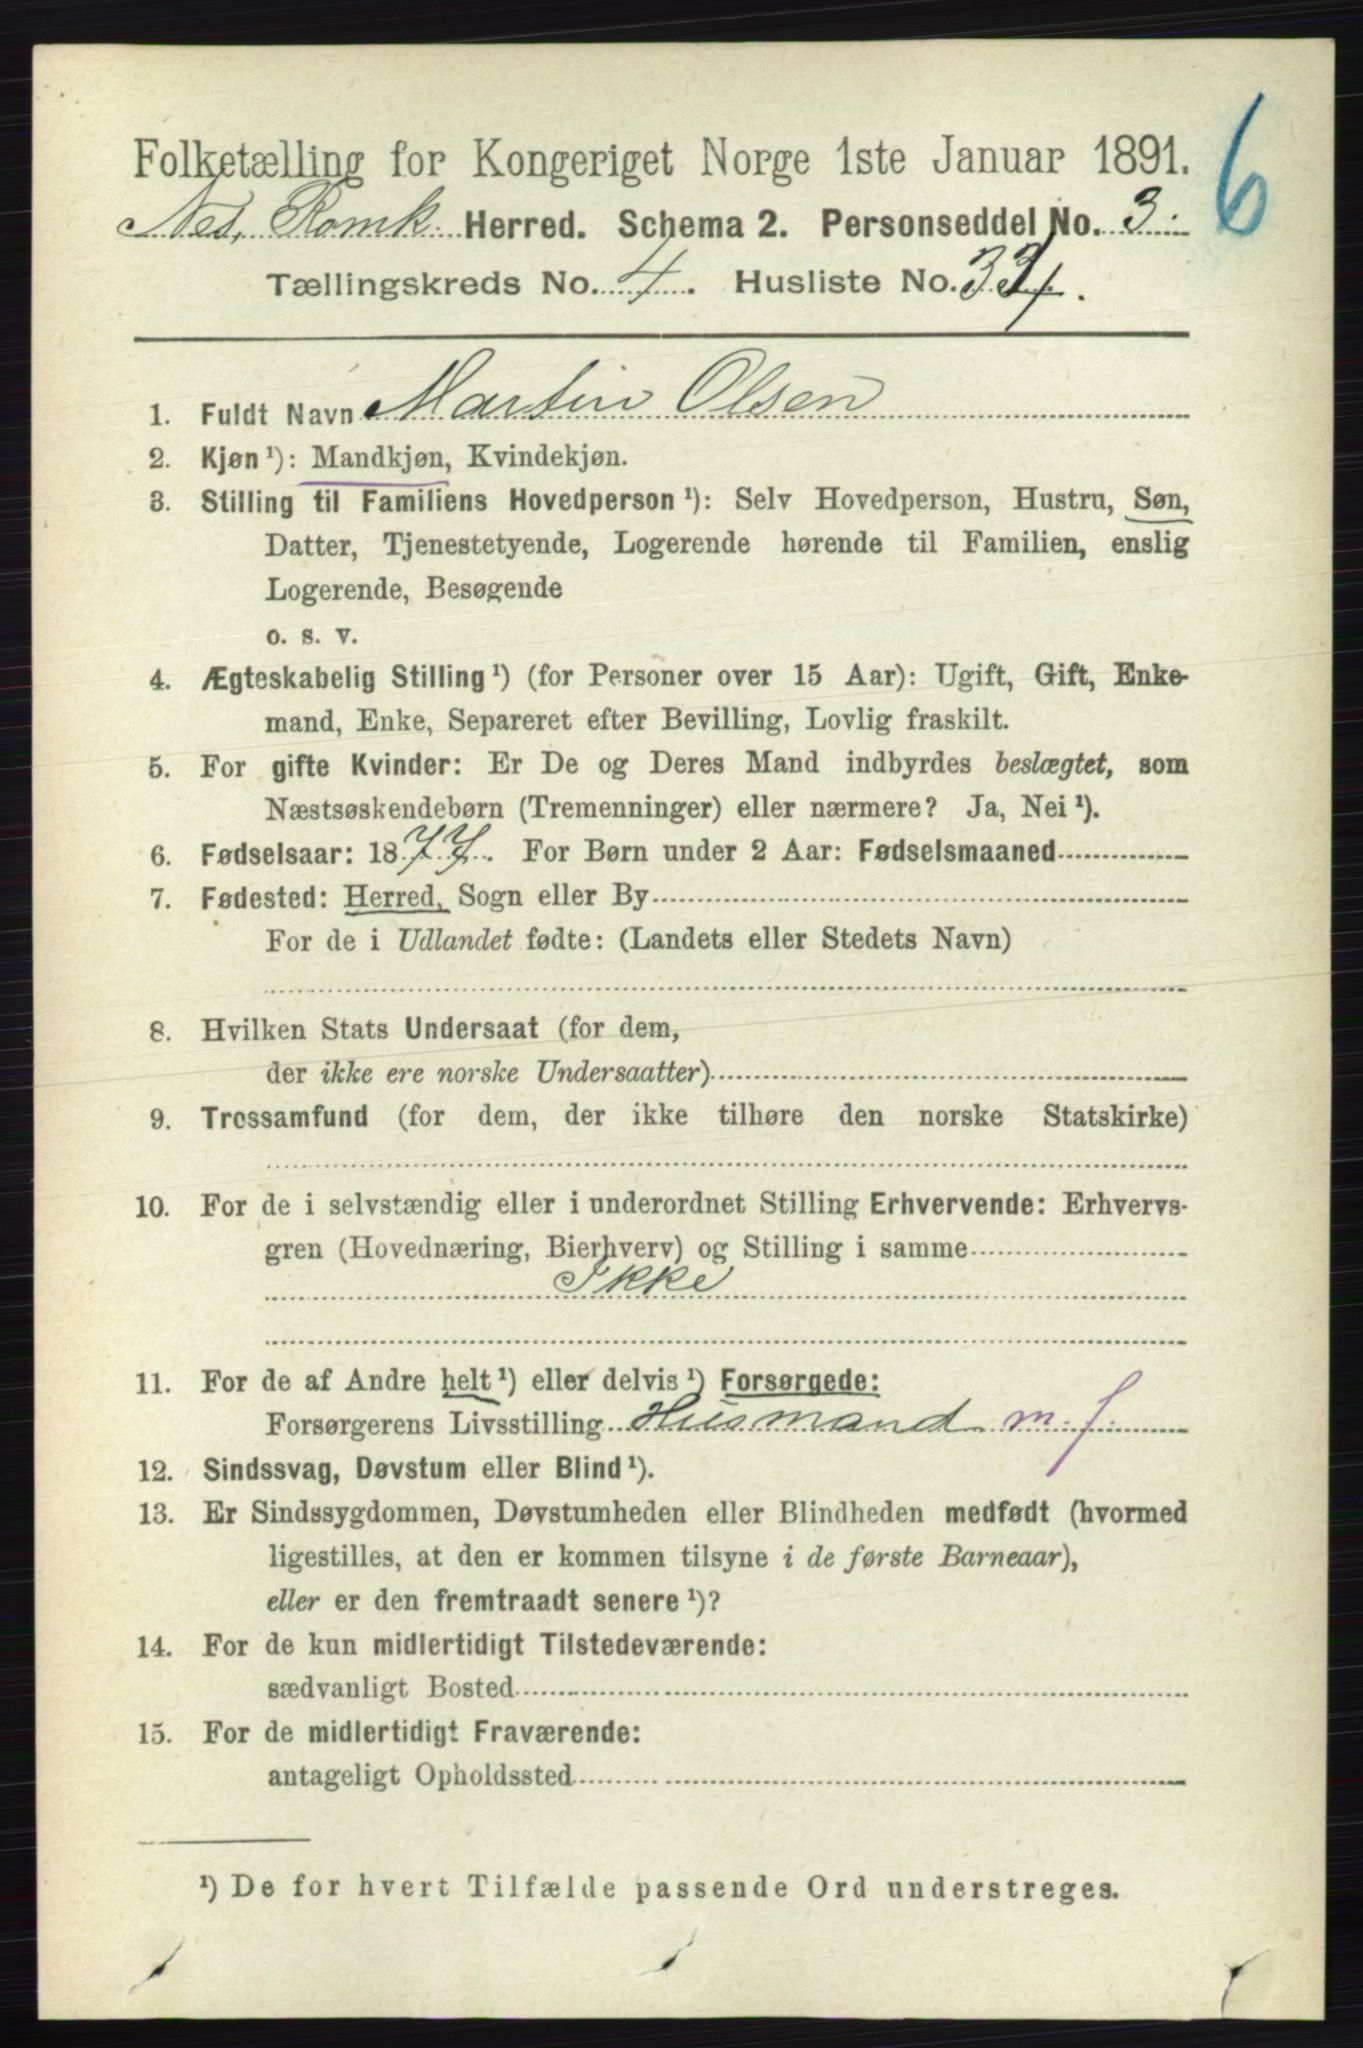 6
Folketælling for Kongeriget Norge 1ste Januar 1891.
Nes, Romk. Herred. Schema 2. Personseddel No. 3.
Tællingskreds No. 4. Husliste No. 34.
1. Fuldt Navn Martin Olsen
2. Kjøn¹): Mandkjøn, Kvindekjøn.
3. Stilling til Familiens Hovedperson¹): Selv Hovedperson, Hustru, Søn,
Datter, Tjenestetyende, Logerende hørende til Familien, enslig
Logerende, Besøgende
o. s. v.
4. Ægteskabelig Stilling¹) (for Personer over 15 Aar): Ugift, Gift, Enke-
mand, Enke, Separeret efter Bevilling, Lovlig fraskilt.
5. For gifte Kvinder: Er De og Deres Mand indbyrdes beslægtet, som
Næstsøskendebørn (Tremenninger) eller nærmere? Ja, Nei¹).
6. Fødselsaar: 1877. For Børn under 2 Aar: Fødselsmaaned
7. Fødested: Herred, Sogn eller By
For de i Udlandet fødte: (Landets eller Stedets Navn)
8. Hvilken Stats Undersaat (for dem,
der ikke ere norske Undersaatter)
9. Trossamfund (for dem, der ikke tilhøre den norske Statskirke)
10. For de i selvstændig eller i underordnet Stilling Erhvervende: Erhvervs-
gren (Hovednæring, Bierhverv) og Stilling i samme
Ikke
11. For de af Andre helt¹) eller delvis¹) Forsørgede:
Forsørgerens Livsstilling Husmand m. j.
12. Sindssvag, Døvstum eller Blind¹).
13. Er Sindssygdommen, Døvstumheden eller Blindheden medfødt (hvormed
ligestilles, at den er kommen tilsyne i de første Barneaar),
eller er den fremtraadt senere¹)?
14. For de kun midlertidigt Tilstedeværende:
sædvanligt Bosted
15. For de midlertidigt Fraværende:
antageligt Opholdssted
¹) De for hvert Tilfælde passende Ord understreges.